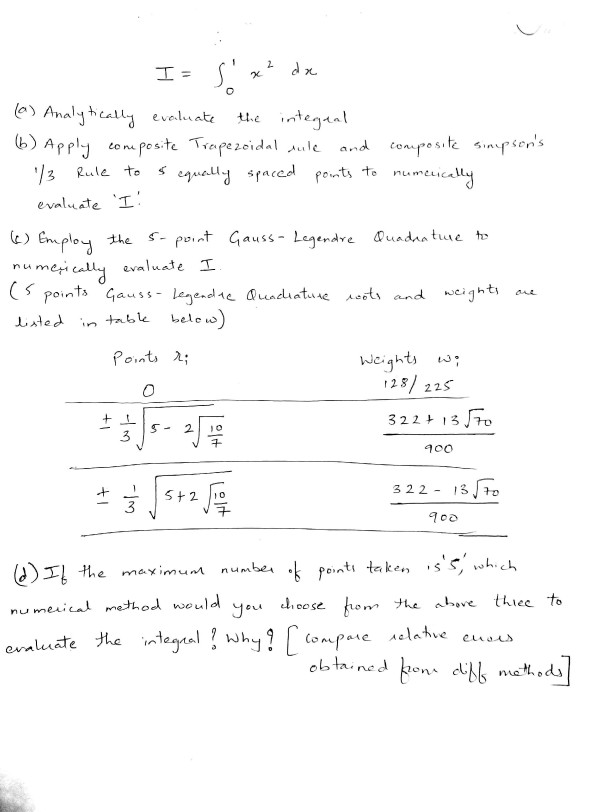 I = ∫₀¹ x² dx
(a) Analytically evaluate the integral
(b) Apply composite Trapezoidal rule and composite simpson's
1/3 Rule to 5 equally spaced points to numerically
evaluate 'I'.
(c) Employ the 5-point Gauss-Legendre Quadrature to
numerically evaluate I.
(5 points Gauss-Legendre Quadrature roots and weights are
listed in table below)
Points ri Weights wi
0 128/225
± 1/3 √(5 - 2√(10/7)) (322 + 13√70)/900
± 1/3 √(5 + 2√(10/7)) (322 - 13√70)/900
(d) If the maximum number of points taken is '5', which
numerical method would you choose from the above three to
evaluate the integral? Why? [compare relative errors
obtained from diff methods]